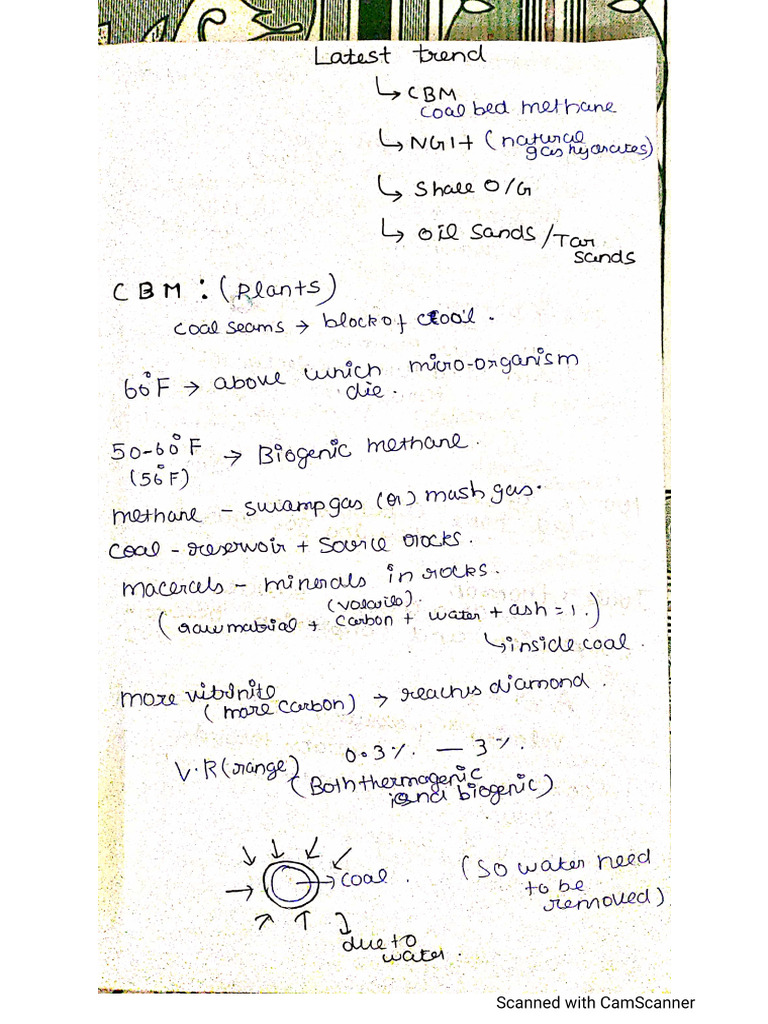 Latest trend
↳ CBM
coal bed methane
↳ NGH (natural
gas hydrates)
↳ Shale O/G
↳ Oil Sands / Tar
Sands
CBM : (Plants)
coal seams → block of cool .
60°F → above which micro-organism
die .
50-60°F → Biogenic methane .
(56°F)
methane - swamp gas (or) mash gas .
coal - reservoir + source rocks .
macerals - minerals in rocks .
(volatile) .
(raw matrial + carbon + water + ash = 1 .)
↳ inside coal .
more vitrinite
(more carbon) → reaches diamond .
V.R (range) 0.3 % . — 3 % .
(Both thermogenic
and biogenic)
→ coal .
(so water need
to be
removed)
due to
water .
Scanned with CamScanner